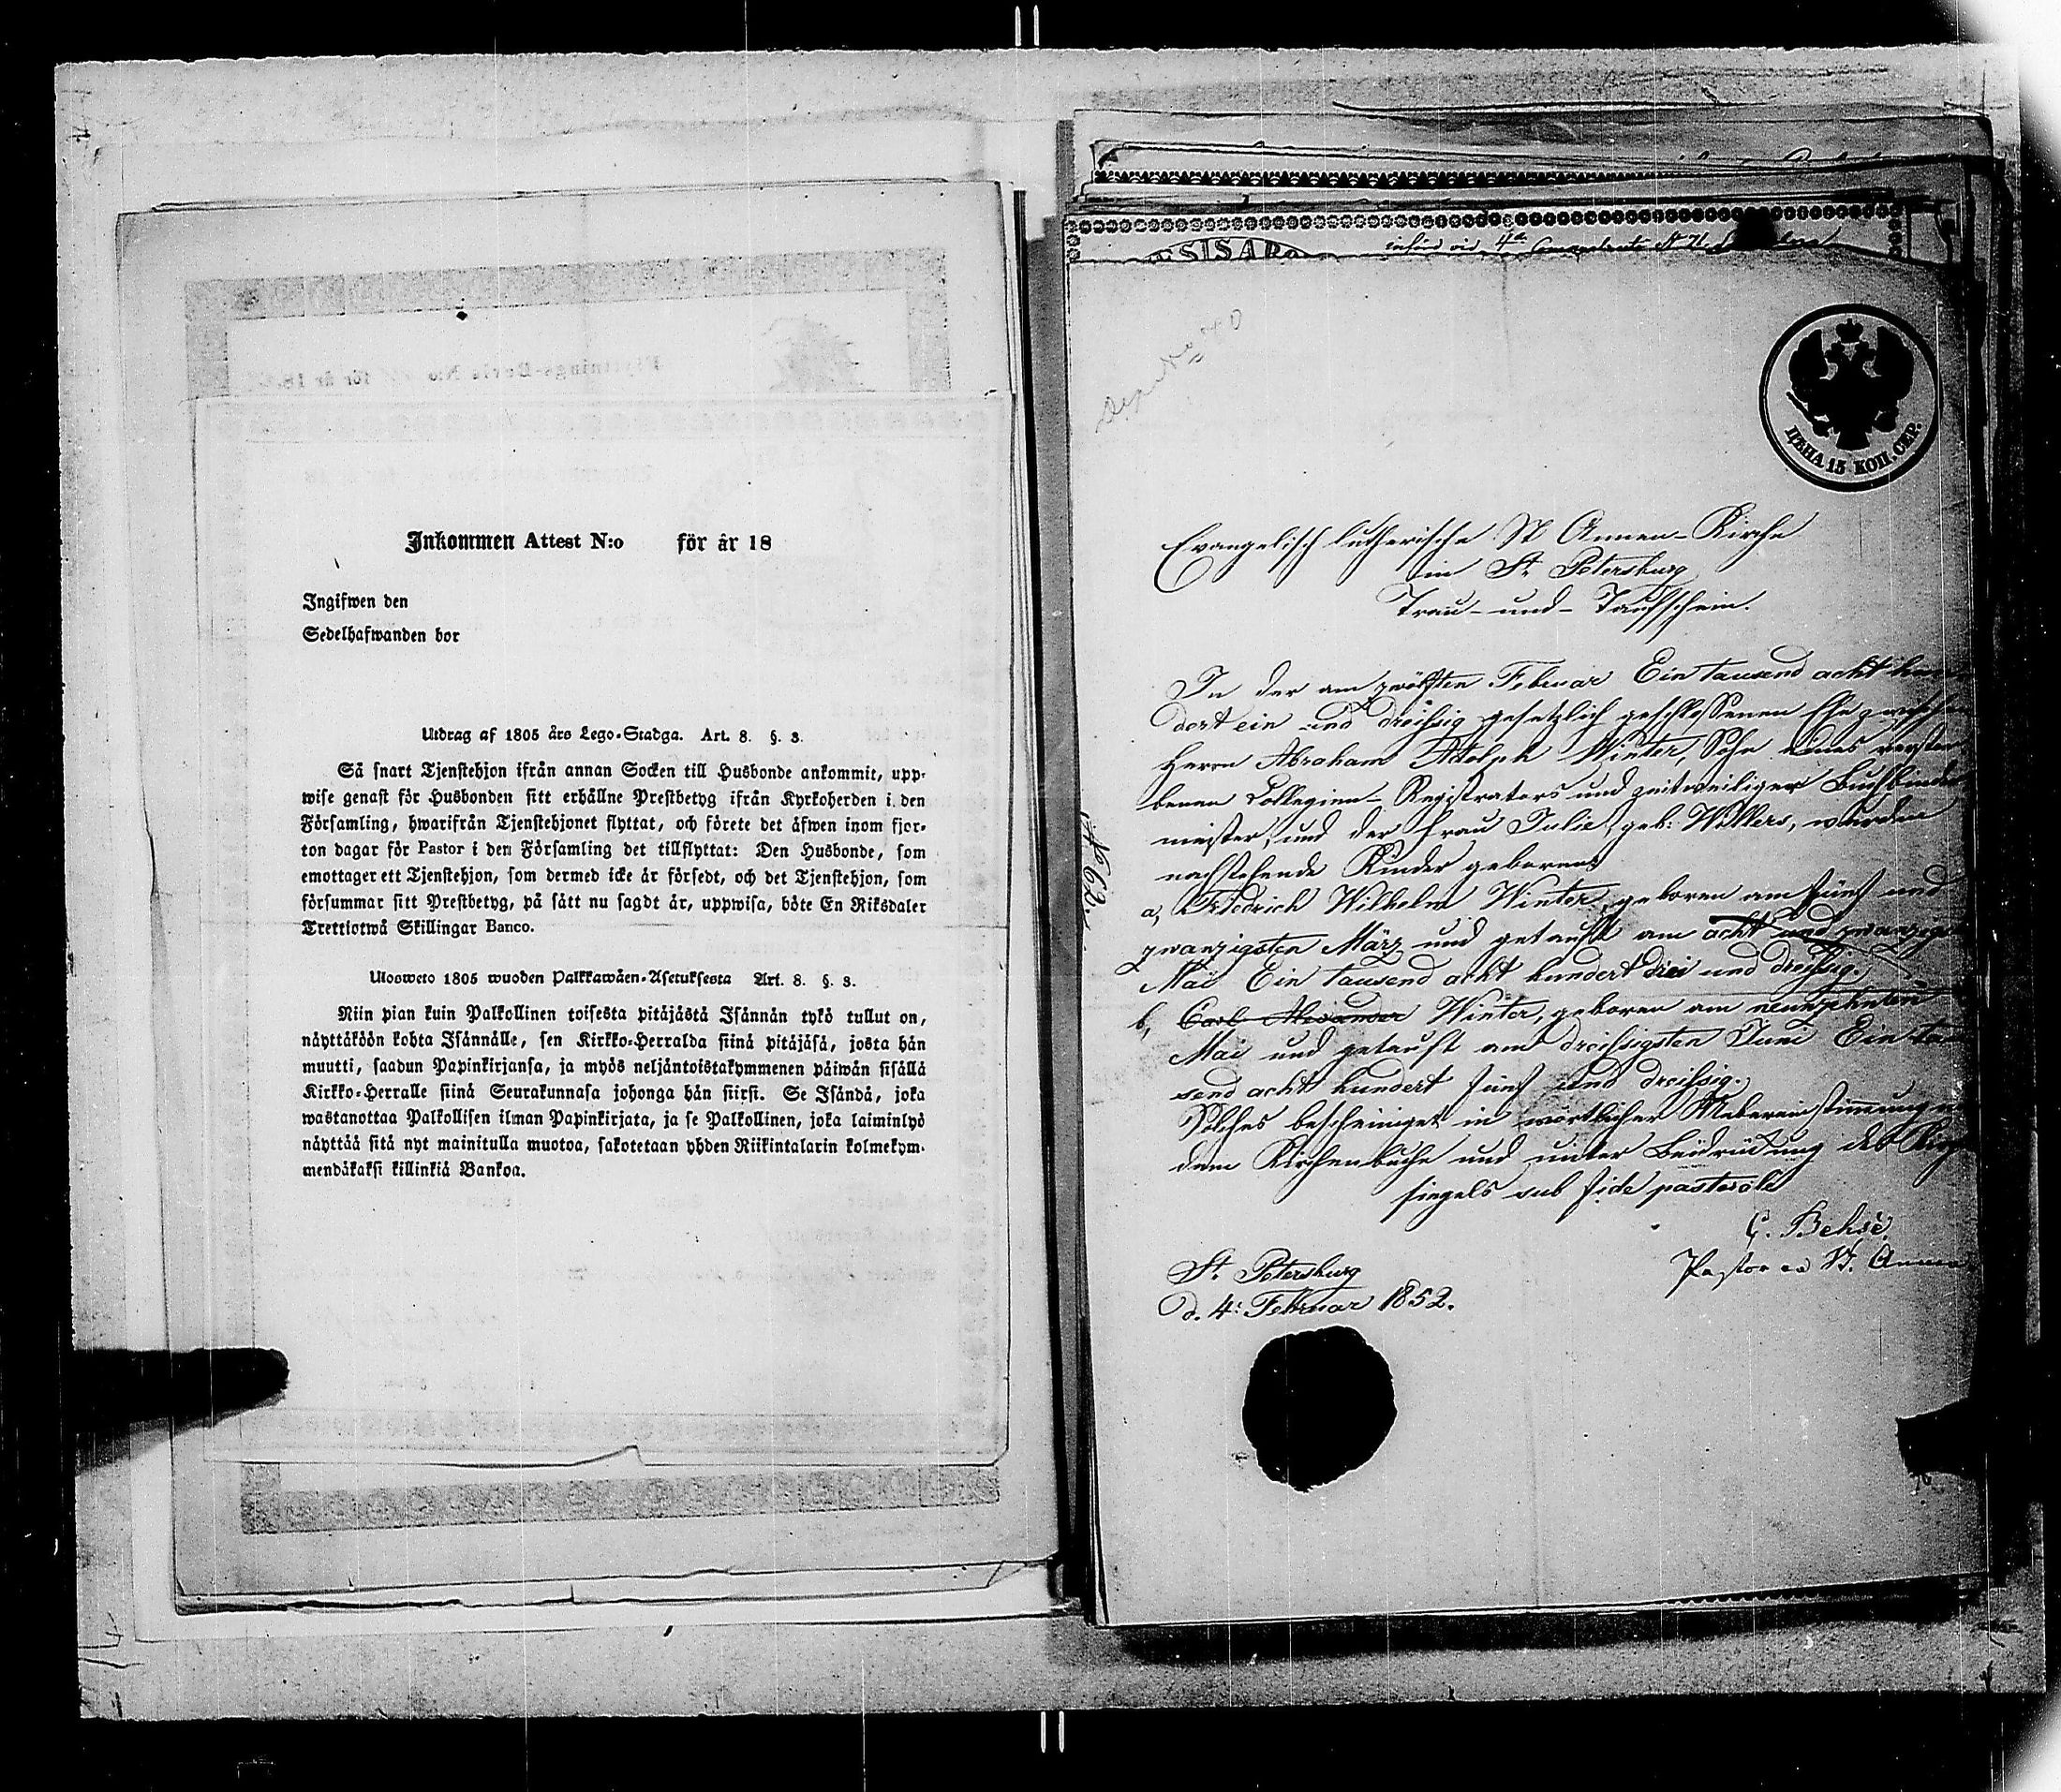 Inkommen Attest N:o för år 18
Ingifwen den
Sedelhafwanden bor
Utdrag af 1805 års Lego-Stadga. Art. 8. §. 3.
Så snart Tjenstehjon ifrån annan Socken till Husbonde ankommit, upp-
wise genast för Husbonden sitt erhållne Prestbetyg ifrån Kyrkoherden i den
Församling, hwarifrån Tjenstehjonet flyttat, och förete det äfwen inom fjor-
ton dagar för Pastor i den Församling det tillflyttat: Den Husbonde, som
emottager ett Tjenstehjon, som dermed icke är försedt, och det Tjenstehjon, som
försummar sitt Prestbetyg, på sätt nu sagdt är, uppwisa, böte En Riksdaler
Trettiotwå Skillingar Banco.
Ulosweto 1805 wuoden Palkkawäen-Asetuksesta Art. 8. §. 3.
Niin pian kuin Palkollinen toisesta pitäjästä Isännän tykö tullut on,
näyttäköön kohta Isännälle, sen Kirkko-Herralda siinä pitäjäsä, josta hän
muutti, saadun Papinkirjansa, ja myös neljäntoistakymmenen päiwän sisällä
Kirkko-Herralle siinä Seurakunnasa johonga hän siirsi. Se Isändä, joka
wastanottaa Palkollisen ilman Papinkirjata, ja se Palkollinen, joka laiminlyö
näyttää sitä nyt mainitulla muotoa, sakotetaan yhden Riikintalarin kolmekym-
mendäkaksi killinkiä Bankoa.
SISAR
ЦѢНА 15 КОП. СЕР.
Evangelisch lutherische St Annen-Kirche
in St. Petersburg
Trau- und- Taufschein.
In der am zwölften Februar Ein tausend acht hun
dert ein und dreißig gesetzlich geschlossenen Ehe zwischen
Herrn Abraham Adolph Winter, Sohn eines verstor
benen Collegien-Registrators und zeitweiliger Buchbinder
meister, und der Frau Julie, geb: Willers, wurden
nachstehende Kinder geboren:
a, Friedrich Wilhelm Winter, geboren am fünf und
zwanzigsten März und getauft am acht und zwanzigsten
Mai Ein tausend acht hundert drei und dreißig.
b, Carl Alexander Winter, geboren am neunzehnten
Mai und getauft am dreißigsten Juni Ein tau
send acht hundert fünf und dreißig.
Solches bescheiniget in wörtlicher Uebereinstimmung
dem Kirchenbuche und unter Beidrückung des Kirch
siegels sub fide pastorali
Pastor St. Annen
St. Petersburg
d. 4: Februar 1852.